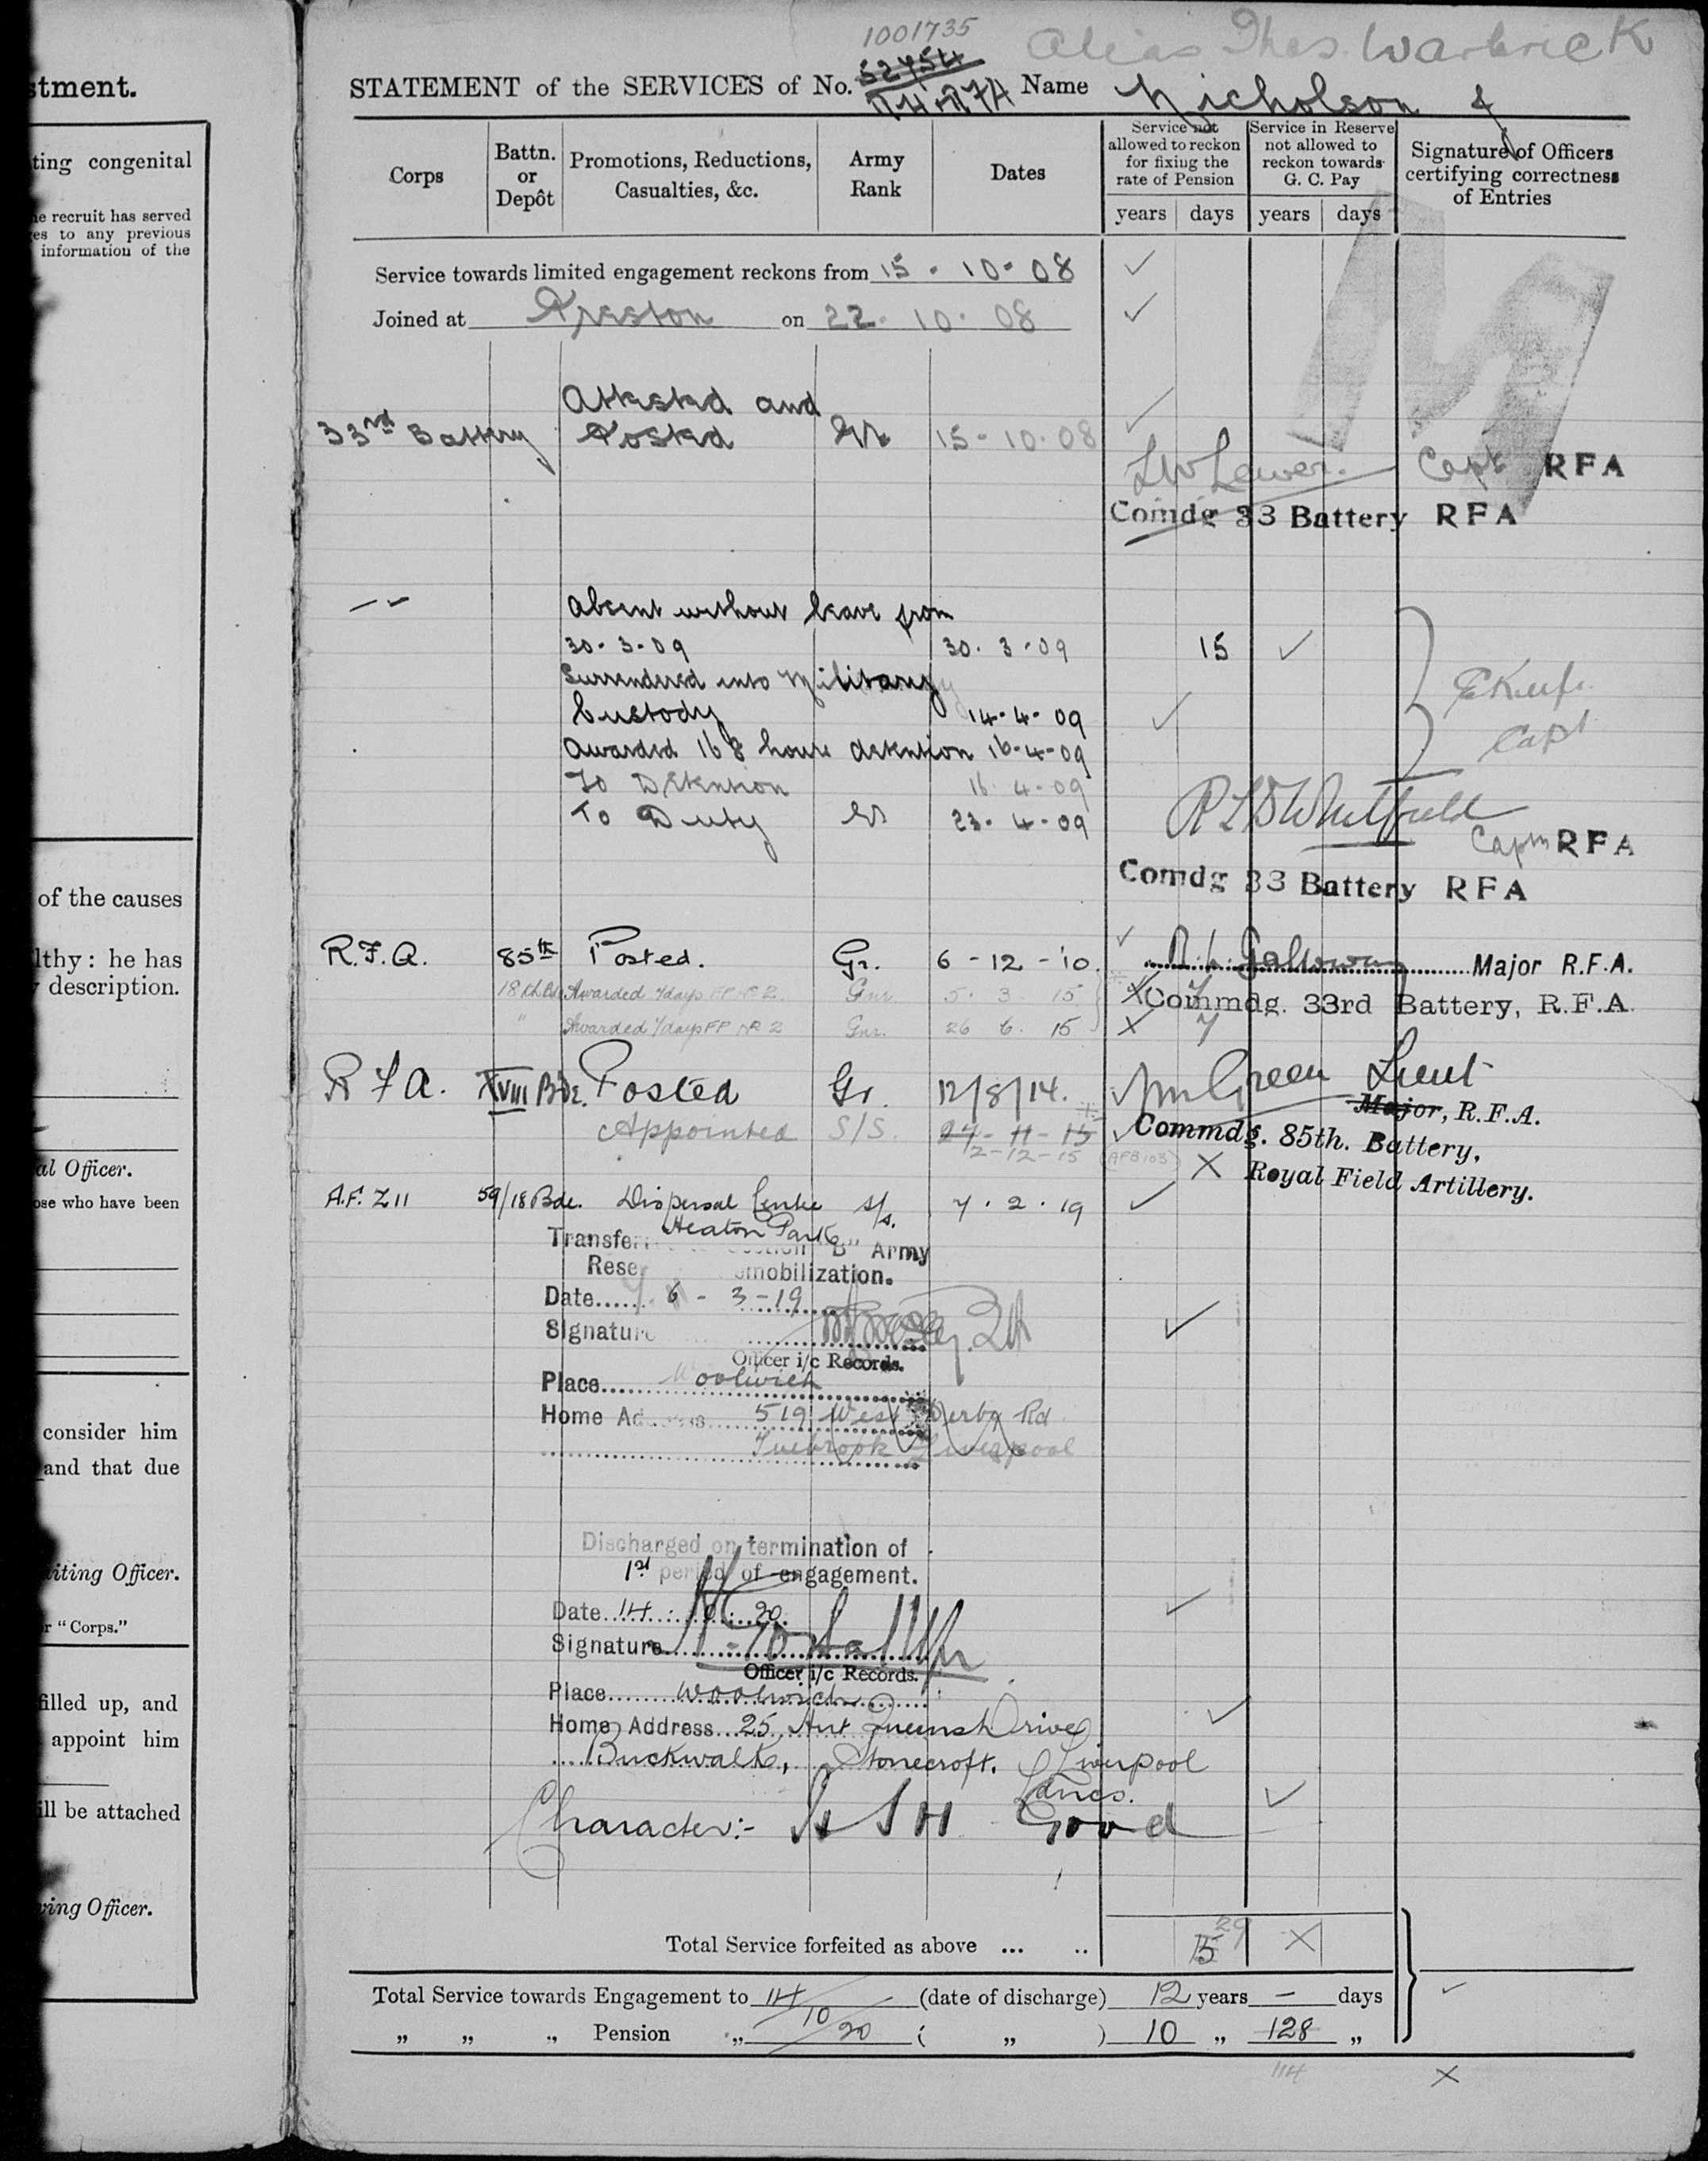 stment.
ting congenital
he recruit has served
es to any previous
information of the
of the causes
lthy : he has
description.
al Officer.
ose who have been
consider him
and that due
iting Officer.
r "Corps."
filled up, and
appoint him
ill be attached
ving Officer.
1001735
Alias Thos. Warbrick
STATEMENT of the SERVICES of No. 52754 Name Nicholson J
Corps
Battn. or Depôt
Promotions, Reductions, Casualties, &c.
Army Rank
Dates
Service not allowed to reckon for fixing the rate of Pension
Service in Reserve not allowed to reckon towards G. C. Pay
Signature of Officers certifying correctness of Entries
years days years days
Service towards limited engagement reckons from 15 - 10 - 08
Joined at Preston on 22 . 10 . 08
Attested and
33rd Battery Posted Gr 15 - 10 . 08
Capt RFA
Comdg 33 Battery RFA
Absent without leave from
30 - 3 - 09 30 . 3 . 09 15
Surrendered into Military
Custody 14 - 4 - 09
Awarded 168 hours detention 16-4-09
To Detention 16 . 4 - 09
Capt
To Duty Gr 23 - 4 - 09
Capt RFA
Comdg 33 Battery RFA
R.F.A. 85th Posted. Gr. 6 - 12 - '10. Major R.F.A.
18th Bde Awarded 7 days FP No 2. Gnr. 5 . 3 . 15 7
Commdg. 33rd Battery, R.F.A.
" Awarded 7 days FP No 2 Gnr. 26 6 . 15 7
R F A. XVIII Bde. Posted Gr. 12/8/14. Green Lieut
Major, R.F.A.
Appointed S/S. 27 - 11 - 15
Commdg. 85th. Battery,
2 - 12 - 15 (AFB103)
Royal Field Artillery.
A.F. Z 11 59/18 Bde. Dispersal Centre S/S. 7 . 2 . 19
Heaton Park
Transfer "B" Army
Rese mobilization.
Date 6 - 3 - 19
Signature
Officer i/c Records.
Place Woolwich
Home Address 519 West Derby Rd
Tuebrook Liverpool
Discharged on termination of
1st period of engagement.
Date 14 . 10 . 20.
Signature
Officer i/c Records.
Place Woolwich
Home Address 25 Hut Queens Drive
Stonecroft, Liverpool
Lancs.
Character:- Good
Total Service forfeited as above ... .. 15 29
Total Service towards Engagement to 14/10/20 (date of discharge) 12 years — days
„ „ „ Pension „ ( „ ) 10 „ 128 „
114